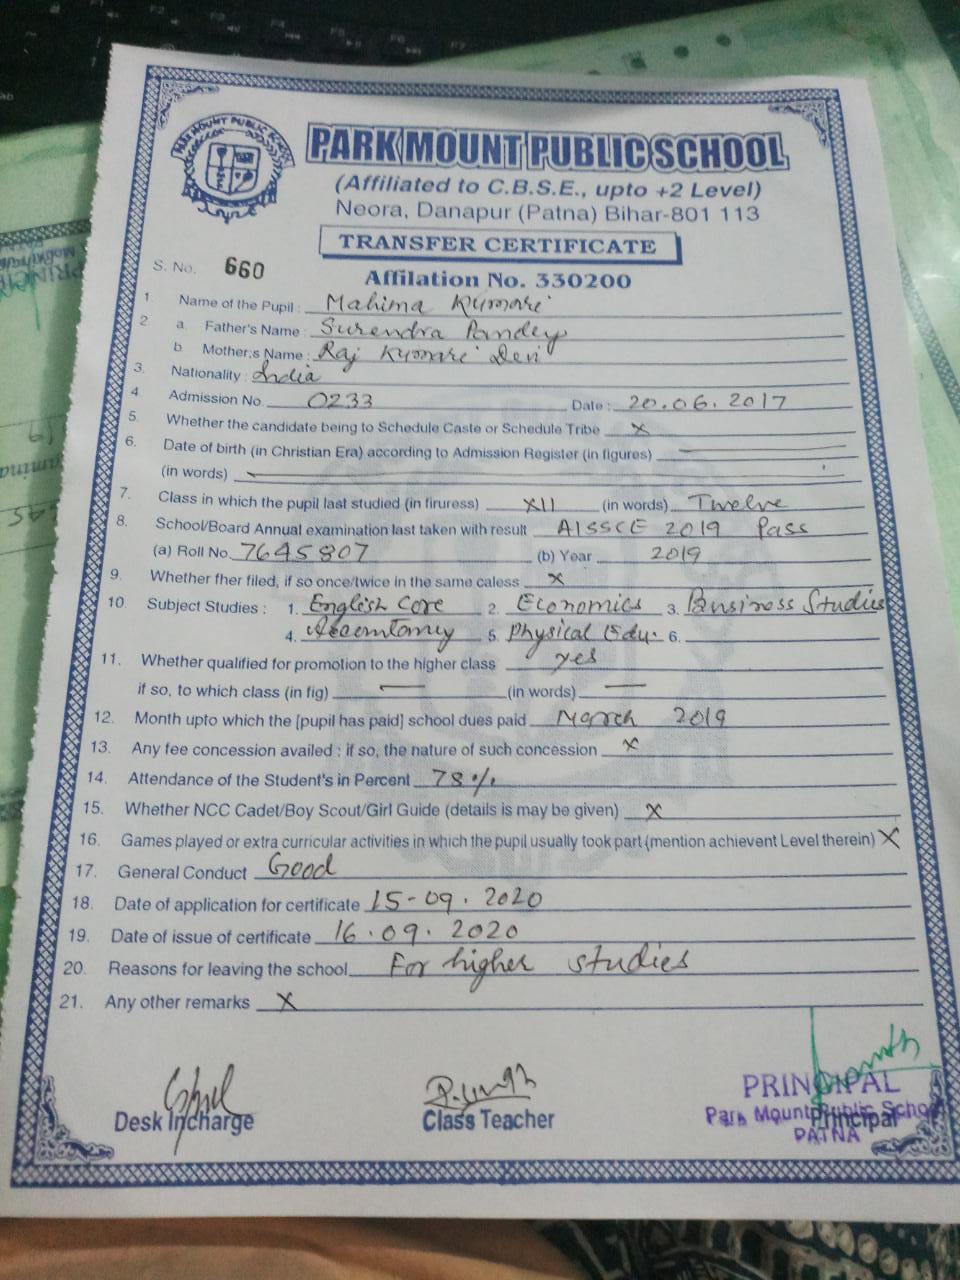 PARK MOUNT PUBLIC SCHOOL
PARK MOUNT PUBLIC SCHOOL
(Affiliated to C.B.S.E., upto +2 Level)
Neora, Danapur (Patna) Bihar-801 113
TRANSFER CERTIFICATE
S. No. 660
Affilation No. 330200
1. Name of the Pupil : Mahima Kumari
2. a. Father's Name : Surendra Pandey
b. Mother;s Name : Raj Kumari Devi
3. Nationality : India
4. Admission No. 0233 Date : 20.06.2017
5. Whether the candidate being to Schedule Caste or Schedule Tribe X
6. Date of birth (in Christian Era) according to Admission Register (in figures) —
(in words) —
7. Class in which the pupil last studied (in firuress) XII (in words) Twelve
8. School/Board Annual examination last taken with result AISSCE 2019 Pass
(a) Roll No. 7645807 (b) Year 2019
9. Whether fher filed, if so once/twice in the same caless X
10. Subject Studies : 1. English Core 2. Economics 3. Bussiness Studies
4. 5. Physical Edu. 6.
11. Whether qualified for promotion to the higher class yes
if so, to which class (in fig) — (in words) —
12. Month upto which the [pupil has paid] school dues paid March 2019
13. Any fee concession availed ; if so, the nature of such concession X
14. Attendance of the Student's in Percent 78%
15. Whether NCC Cadet/Boy Scout/Girl Guide (details is may be given) X
16. Games played or extra curricular activities in which the pupil usually took part (mention achievent Level therein) X
17. General Conduct Good
18. Date of application for certificate 15-09.2020
19. Date of issue of certificate 16.09.2020
20. Reasons for leaving the school For higher studies
21. Any other remarks X
PRINCIPAL
Desk Incharge Class Teacher Principal
Park Mount Public School
PATNA